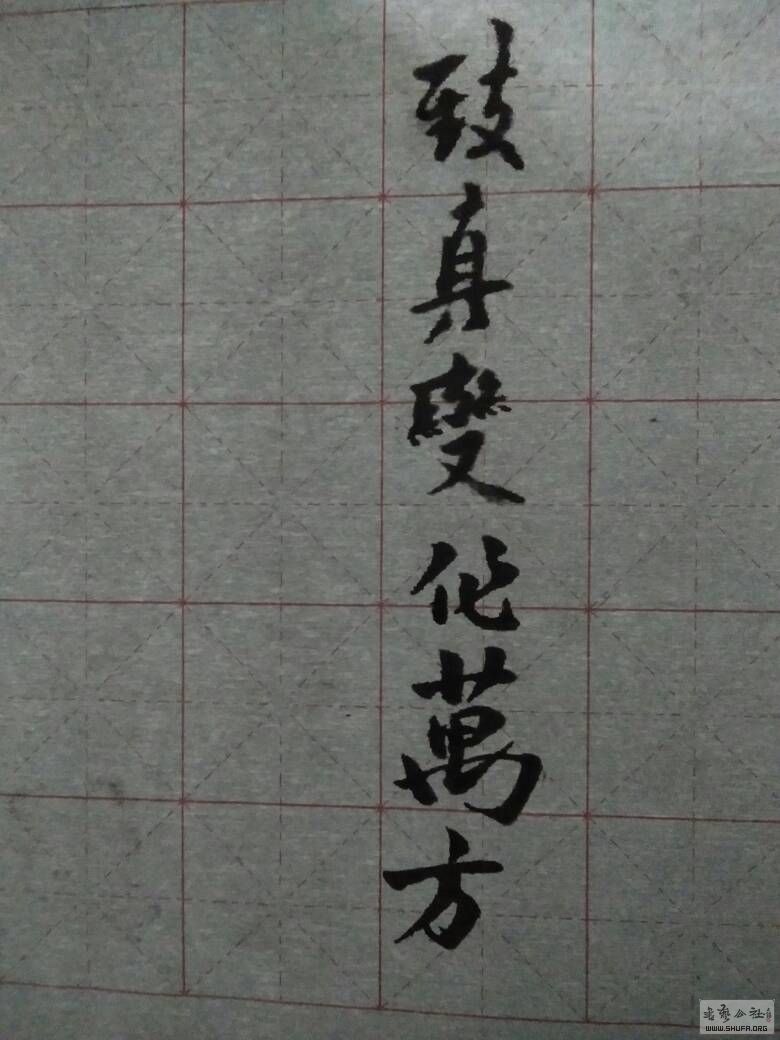 致真變化萬方
书艺公社
WWW.SHUFA.ORG